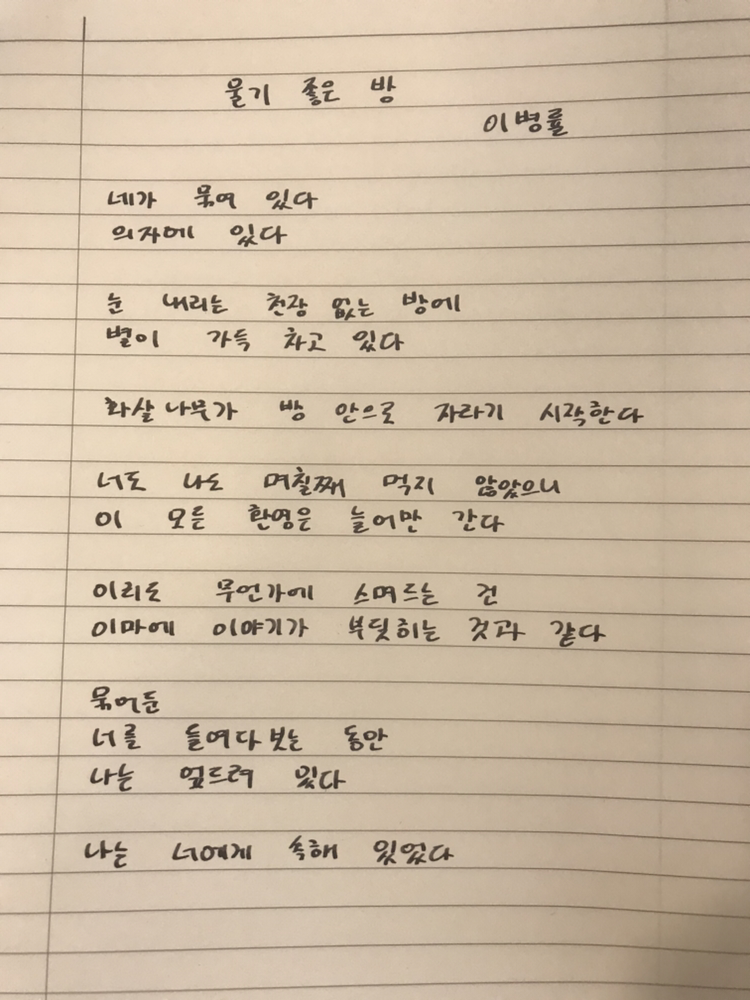 물기 좋은 방
이병률
네가 묶여 있다
의자에 있다
눈 내리는 천장 없는 방에
별이 가득 차고 있다
화살나무가 방 안으로 자라기 시작한다
너도 나도 며칠째 먹지 않았으니
이 모든 환영은 늘어만 간다
이리도 무언가에 스며드는 건
이마에 이야기가 부딪히는 것과 같다
묶어둔
너를 들여다보는 동안
나는 엎드려 있다
나는 너에게 속해 있었다